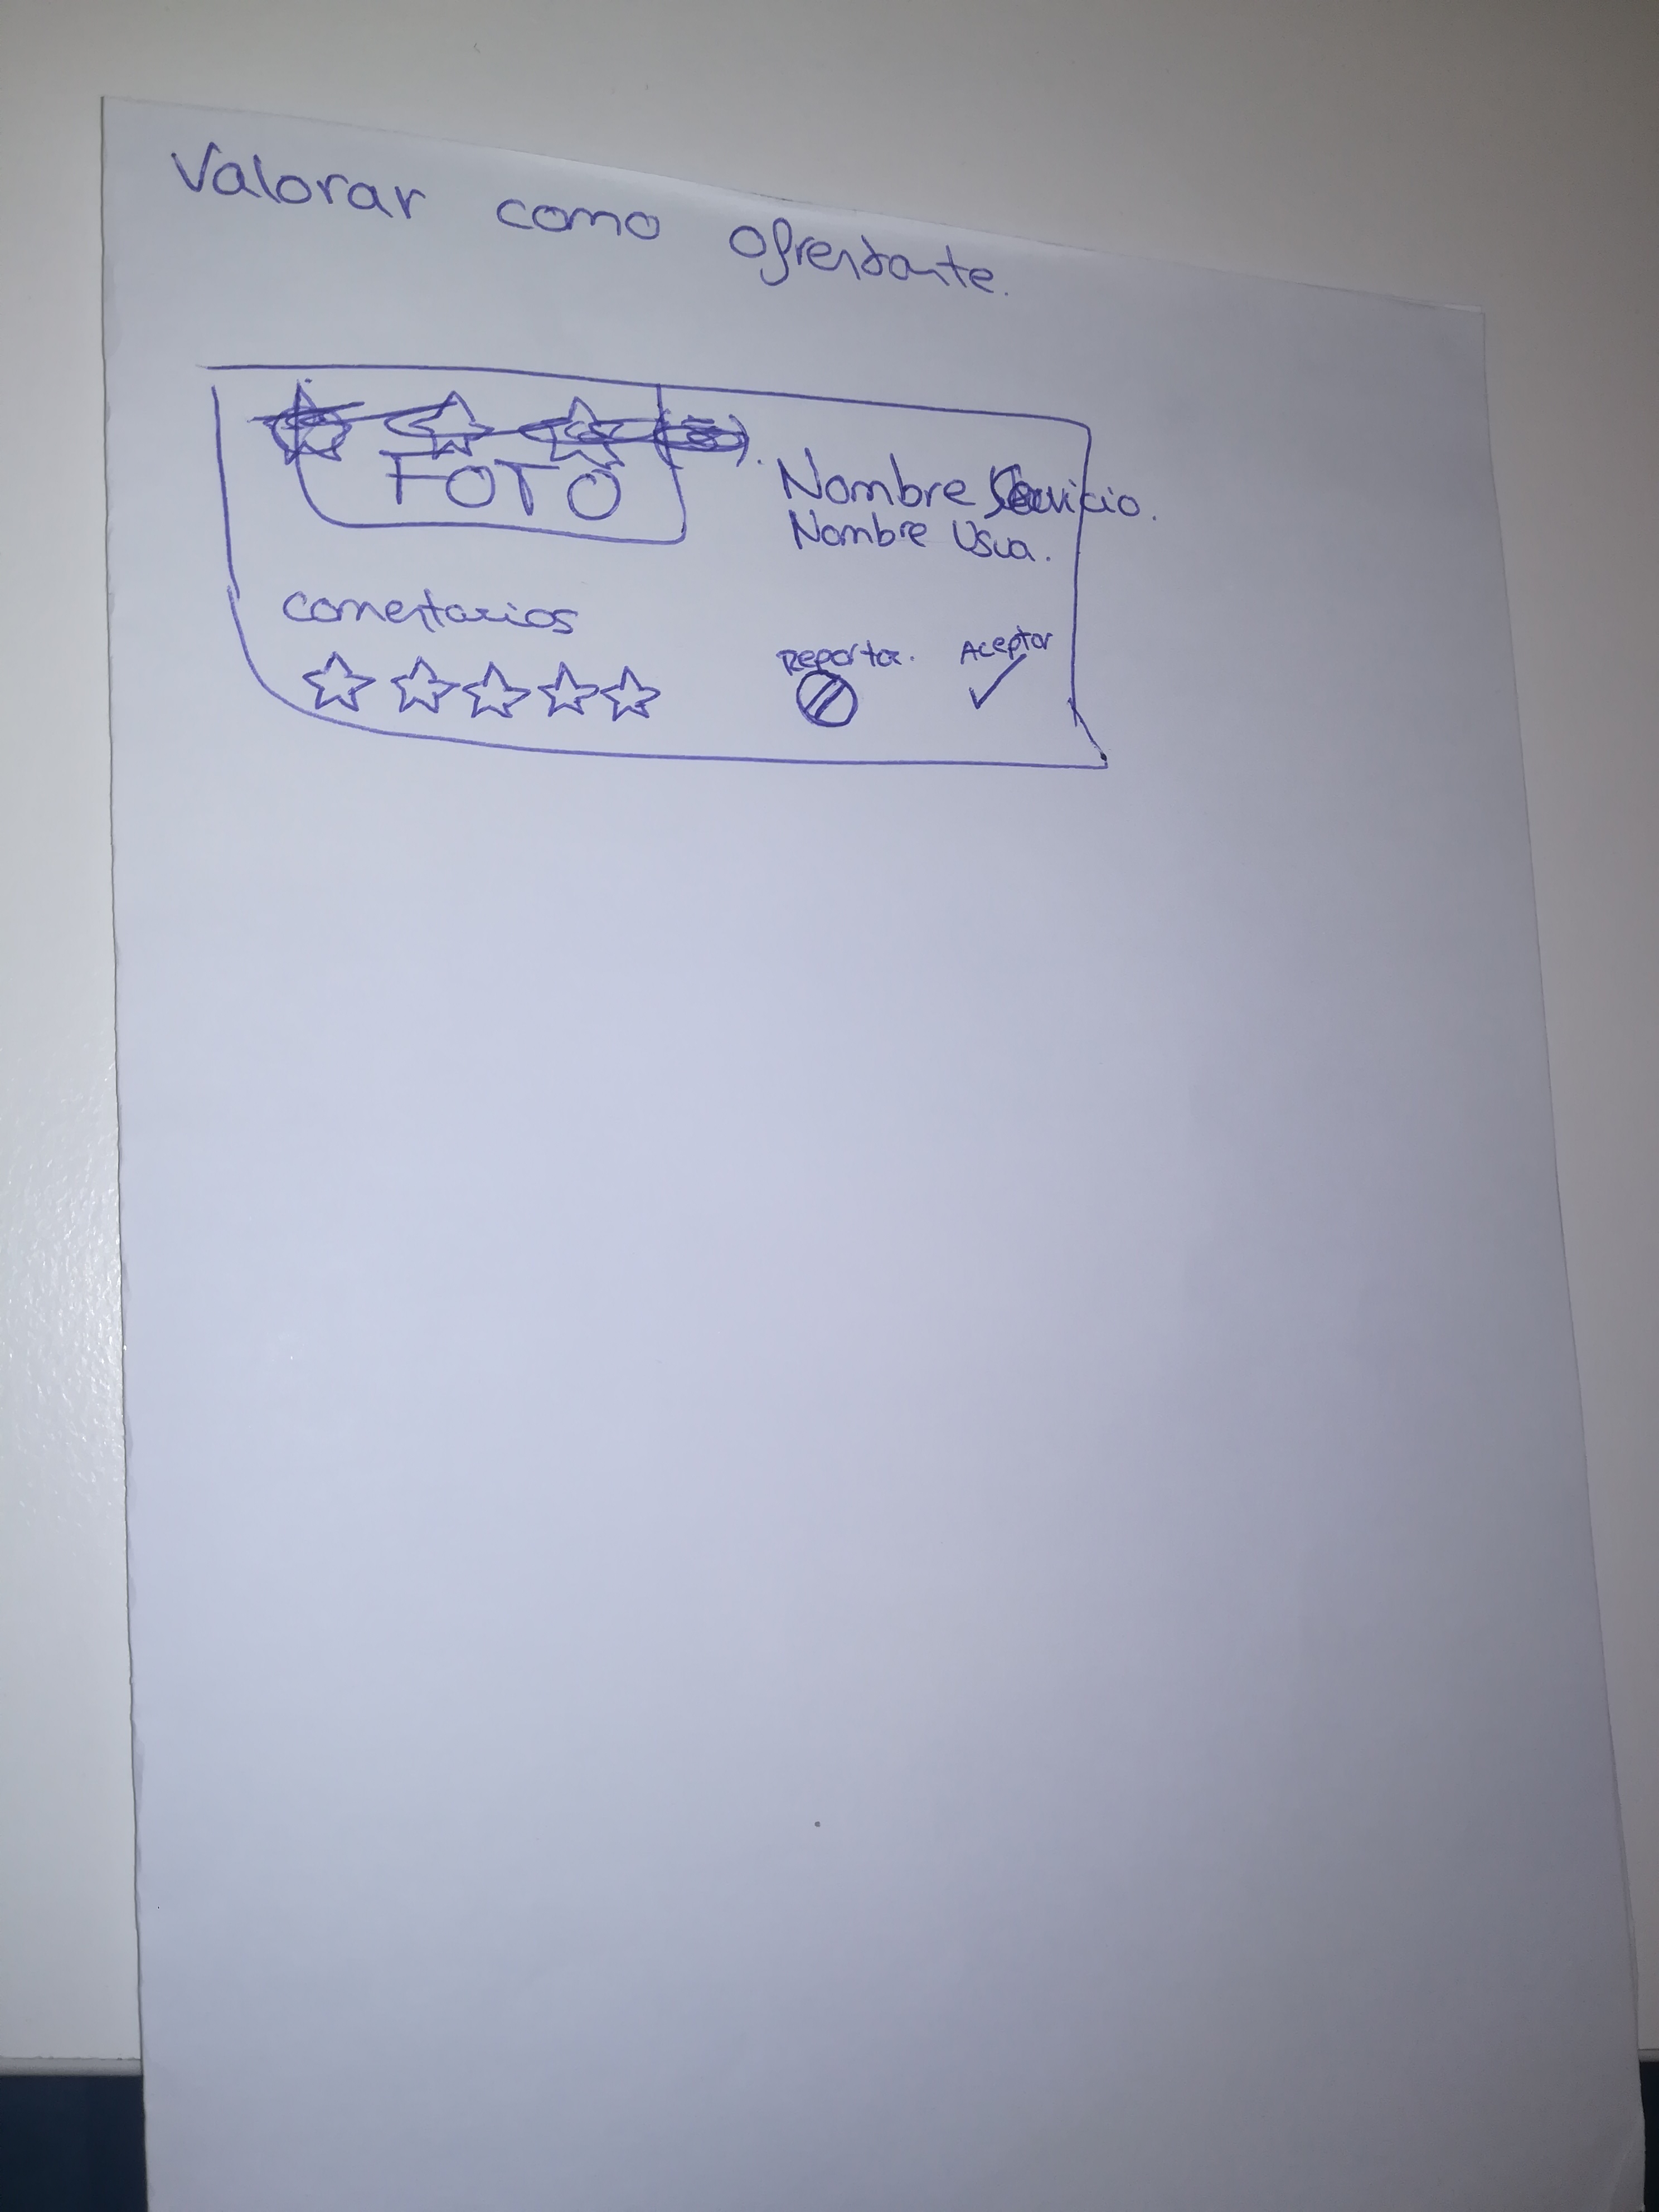 Valorar como ofrentante.
FOTO
Nombre Servicio.
Nombre Usua.
comentarios
Reporta. Aceptar